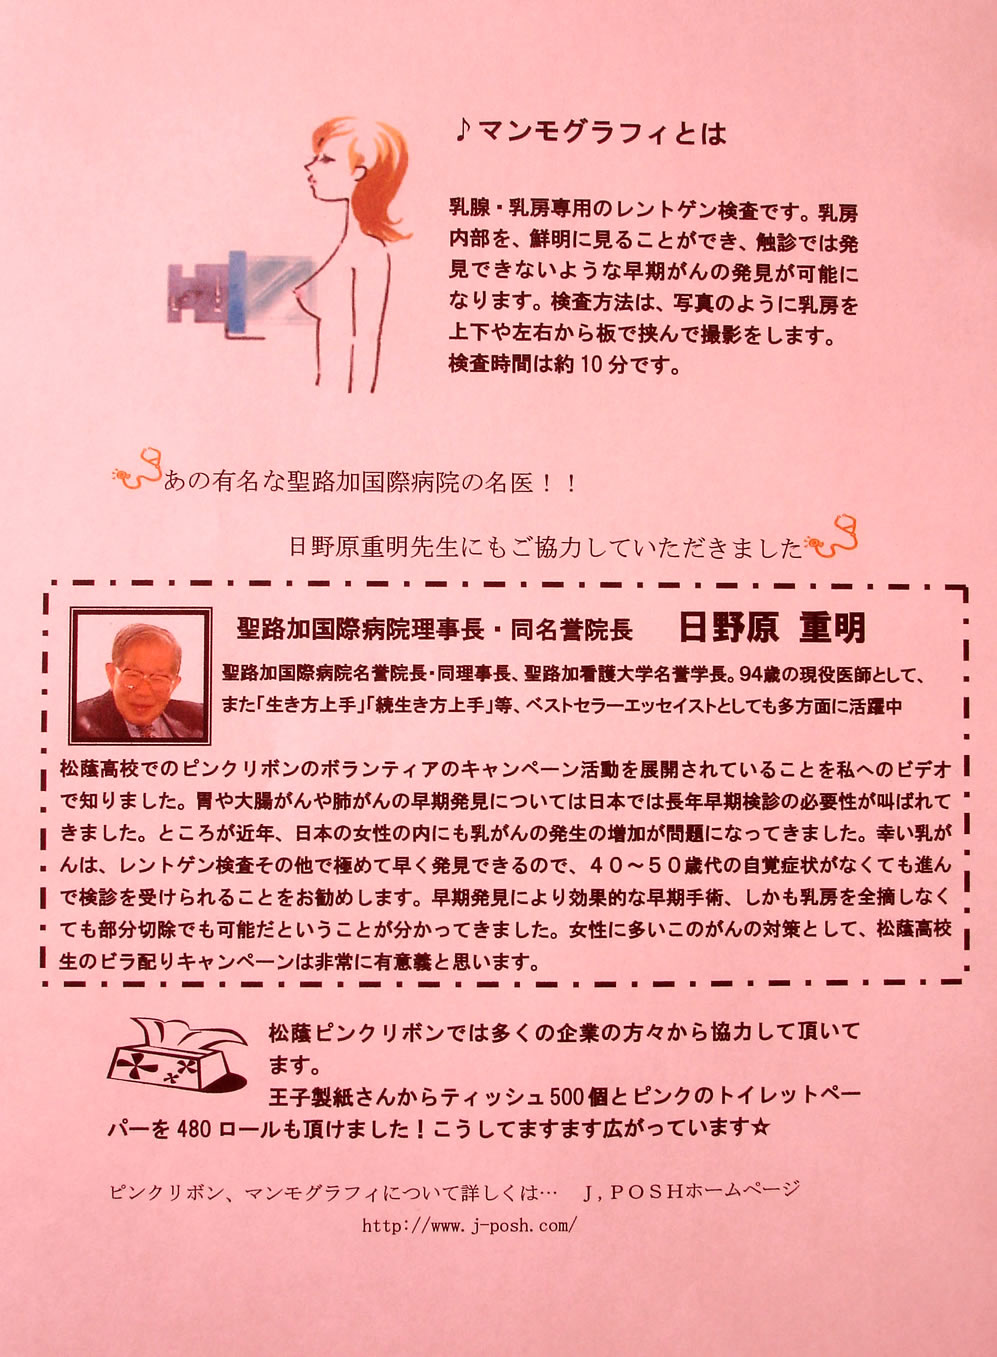 ♪マンモグラフィとは
乳腺・乳房専用のレントゲン検査です。乳房
内部を、鮮明に見ることができ、触診では発
見できないような早期がんの発見が可能に
なります。検査方法は、写真のように乳房を
上下や左右から板で挟んで撮影をします。
検査時間は約10分です。
あの有名な聖路加国際病院の名医！！
日野原重明先生にもご協力していただきました
聖路加国際病院理事長・同名誉院長　日野原 重明
聖路加国際病院名誉院長・同理事長、聖路加看護大学名誉学長。94歳の現役医師として、
また「生き方上手」「続生き方上手」等、ベストセラーエッセイストとしても多方面に活躍中
松蔭高校でのピンクリボンのボランティアのキャンペーン活動を展開されていることを私へのビデオ
で知りました。胃や大腸がんや肺がんの早期発見については日本では長年早期検診の必要性が叫ばれて
きました。ところが近年、日本の女性の内にも乳がんの発生の増加が問題になってきました。幸い乳が
んは、レントゲン検査その他で極めて早く発見できるので、４０～５０歳代の自覚症状がなくても進ん
で検診を受けられることをお勧めします。早期発見により効果的な早期手術、しかも乳房を全摘しなく
ても部分切除でも可能だということが分かってきました。女性に多いこのがんの対策として、松蔭高校
生のビラ配りキャンペーンは非常に有意義と思います。
松蔭ピンクリボンでは多くの企業の方々から協力して頂いて
ます。
王子製紙さんからティッシュ500個とピンクのトイレットペー
パーを480ロールも頂けました！こうしてますます広がっています☆
ピンクリボン、マンモグラフィについて詳しくは…　Ｊ,ＰＯＳＨホームページ
http://www.j-posh.com/